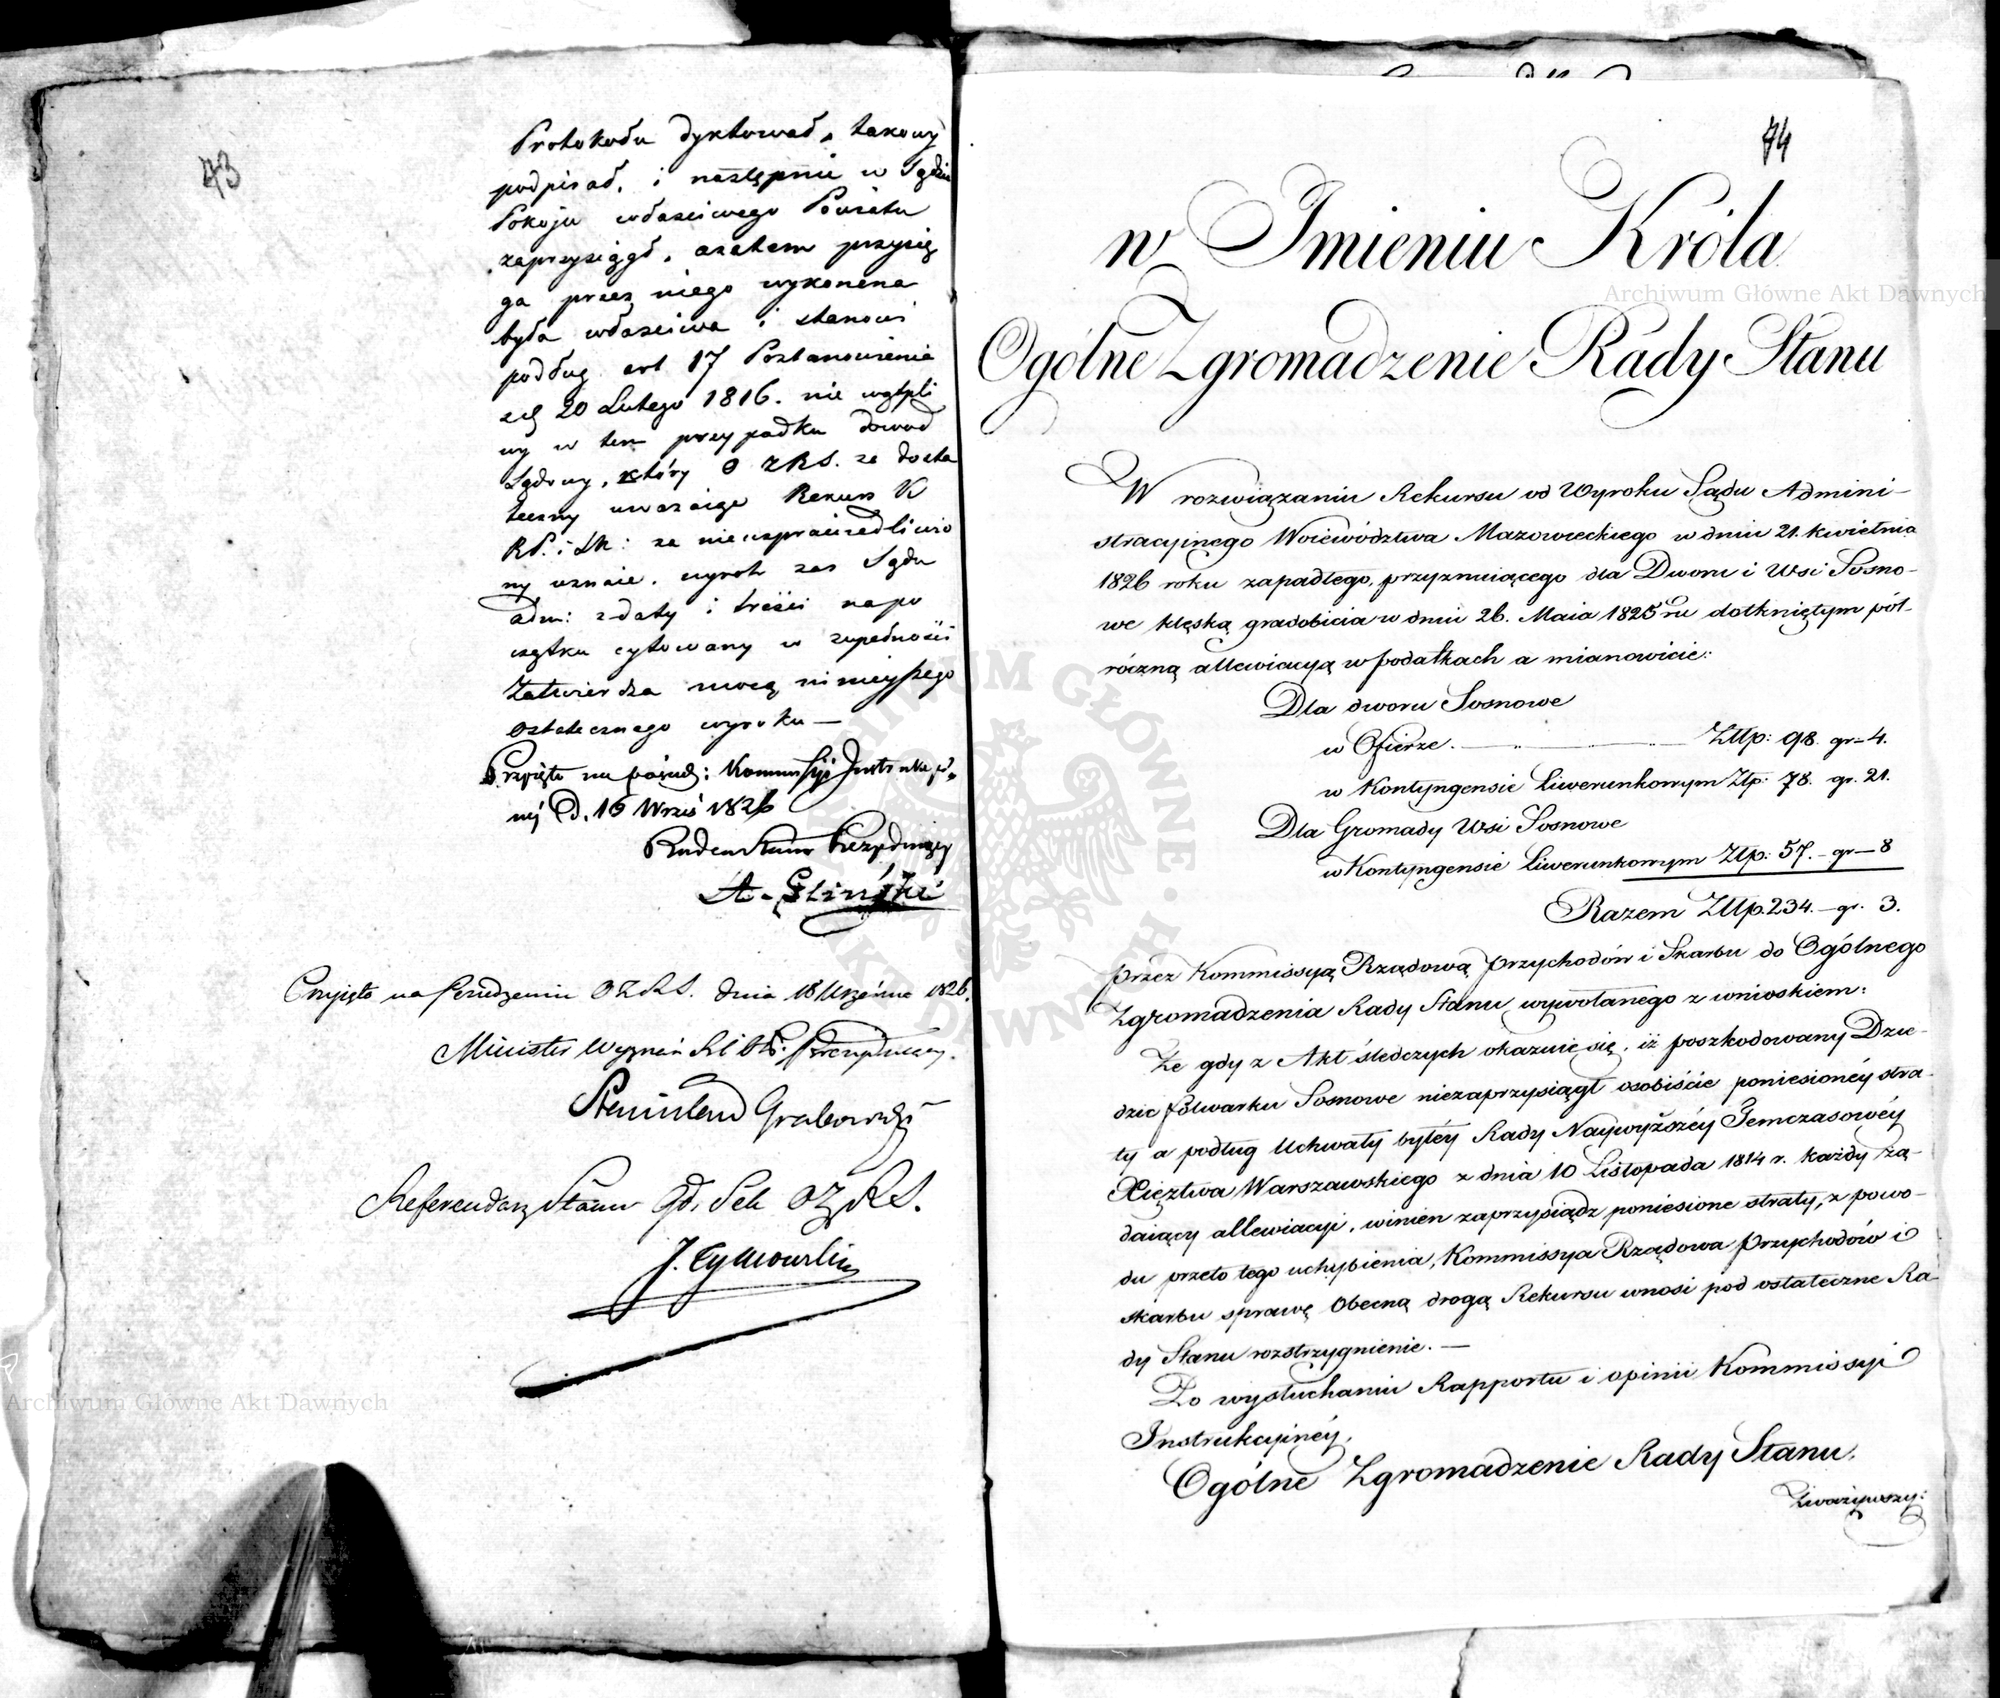 73
Protokułu dyktował, takowy
podpisał, i następnie w Sądzie
Pokoju właściwego Powiatu
zaprzysiągł, azatem przysię
ga przez niego wykonana
była właściwa i stanowi
podług art 17 Postanowienia
z d. 20 Lutego 1816. nie wątpli
wy w tem przypadku dowód
Sądowy, który O Z R S. za dosta
teczny uważaiąc Rekurs K
R P. i Sk: za nieusprawiedliwio
ny uznaie. wyrok zas Sądu
adm: z daty i treści na po
czątku cytowany w zupełności
Zatwierdza mocą ninieyszego
ostatecznego wyroku —
Przyięto na posiedz: Kommissyi Instrukcy
nej D. 16 Wrześ 1826
Radca Stanu Prezyduiący
A. Gliński
Przyięto na Posiedzeniu O Z R S. dnia 18 Września 1826.
Minister Wyznań R. i O. P. Prezyduiący.
Stanisław Grabowski
Referendarz Stanu Sek O Z R S.
74
w Imieniu Króla
Ogólne Zgromadzenie Rady Stanu
W rozwiązaniu Rekursu od Wyroku Sądu Admini-
stracyinego Woiewództwa Mazowieckiego w dniu 21. kwietnia
1826 roku zapadłego, przyznaiącego dla Dworu i Wsi Sosno-
we klęską gradobicia w dniu 26. Maia 1825 ru dotkniętym pół-
roczną allewiacyą w podatkach a mianowicie:
Dla dworu Sosnowe
w Ofierze. — " — Złlp: 98. gr - 4.
w Kontyngensie Liwerunkowym Złp: 78. gr. 21.
Dla Gromady Wsi Sosnowe
w Kontyngensie Liwerunkowym Złlp: 57. - gr - 8
Razem Złlp. 234. - gr. 3.
przez Kommissyą Rządową Przychodów i Skarbu do Ogólnego
Zgromadzenia Rady Stanu wywołanego z wnioskiem:
Że gdy z Akt śledczych okazuie się, iż poszkodowany Dzie-
dzic folwarku Sosnowe niezaprzysiągł osobiście poniesionéy stra-
ty a podług Uchwały byłéy Rady Naywyższéy Temczasowéy
Xięztwa Warszawskiego z dnia 10 Listopada 1814 r. każdy żą-
daiący allewiacyi, winien zaprzysiądz poniesione straty, z powo-
du przeto tego uchybienia, Kommissya Rządowa Przychodów i
skarbu sprawę obecną drogą Rekursu wnosi pod ostateczne Ra-
dy Stanu rozstrzygnienie. —
Po wysłuchaniu Rapportu i opinii Kommissyi
Instrukcyinéy,
Ogólne Zgromadzenie Rady Stanu,
Zważywszy:
Archiwum Główne Akt Dawnych
Archiwum Główne Akt Dawnych
ARCHIWUM GŁÓWNE AKT DAWNYCH